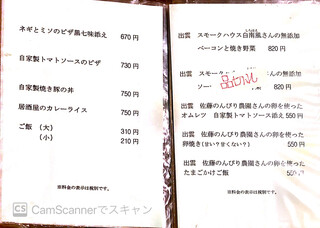 ネギとミソのピザ黒七味添え 670円
自家製トマトソースのピザ 730円
自家製焼き豚の丼 750円
居酒屋のカレーライス 750円
ご飯 (大) 310円
(小) 210円
※料金の表示は税別です。
CS CamScannerでスキャン
出雲 スモークハウス白南風さんの無添加
ベーコンと焼き野菜 820円
出雲 スモーク さんの無添加
ソー 820円
品切れ
出雲 佐藤のんびり農園さんの卵を使った
オムレツ 自家製トマトソース添え 550円
出雲 佐藤のんびり農園さんの卵を使った
卵焼き(甘い?甘くない?) 550円
出雲 佐藤のんびり農園さんの卵を使った
たまごかけご飯 550円
※料金の表示は税別です。